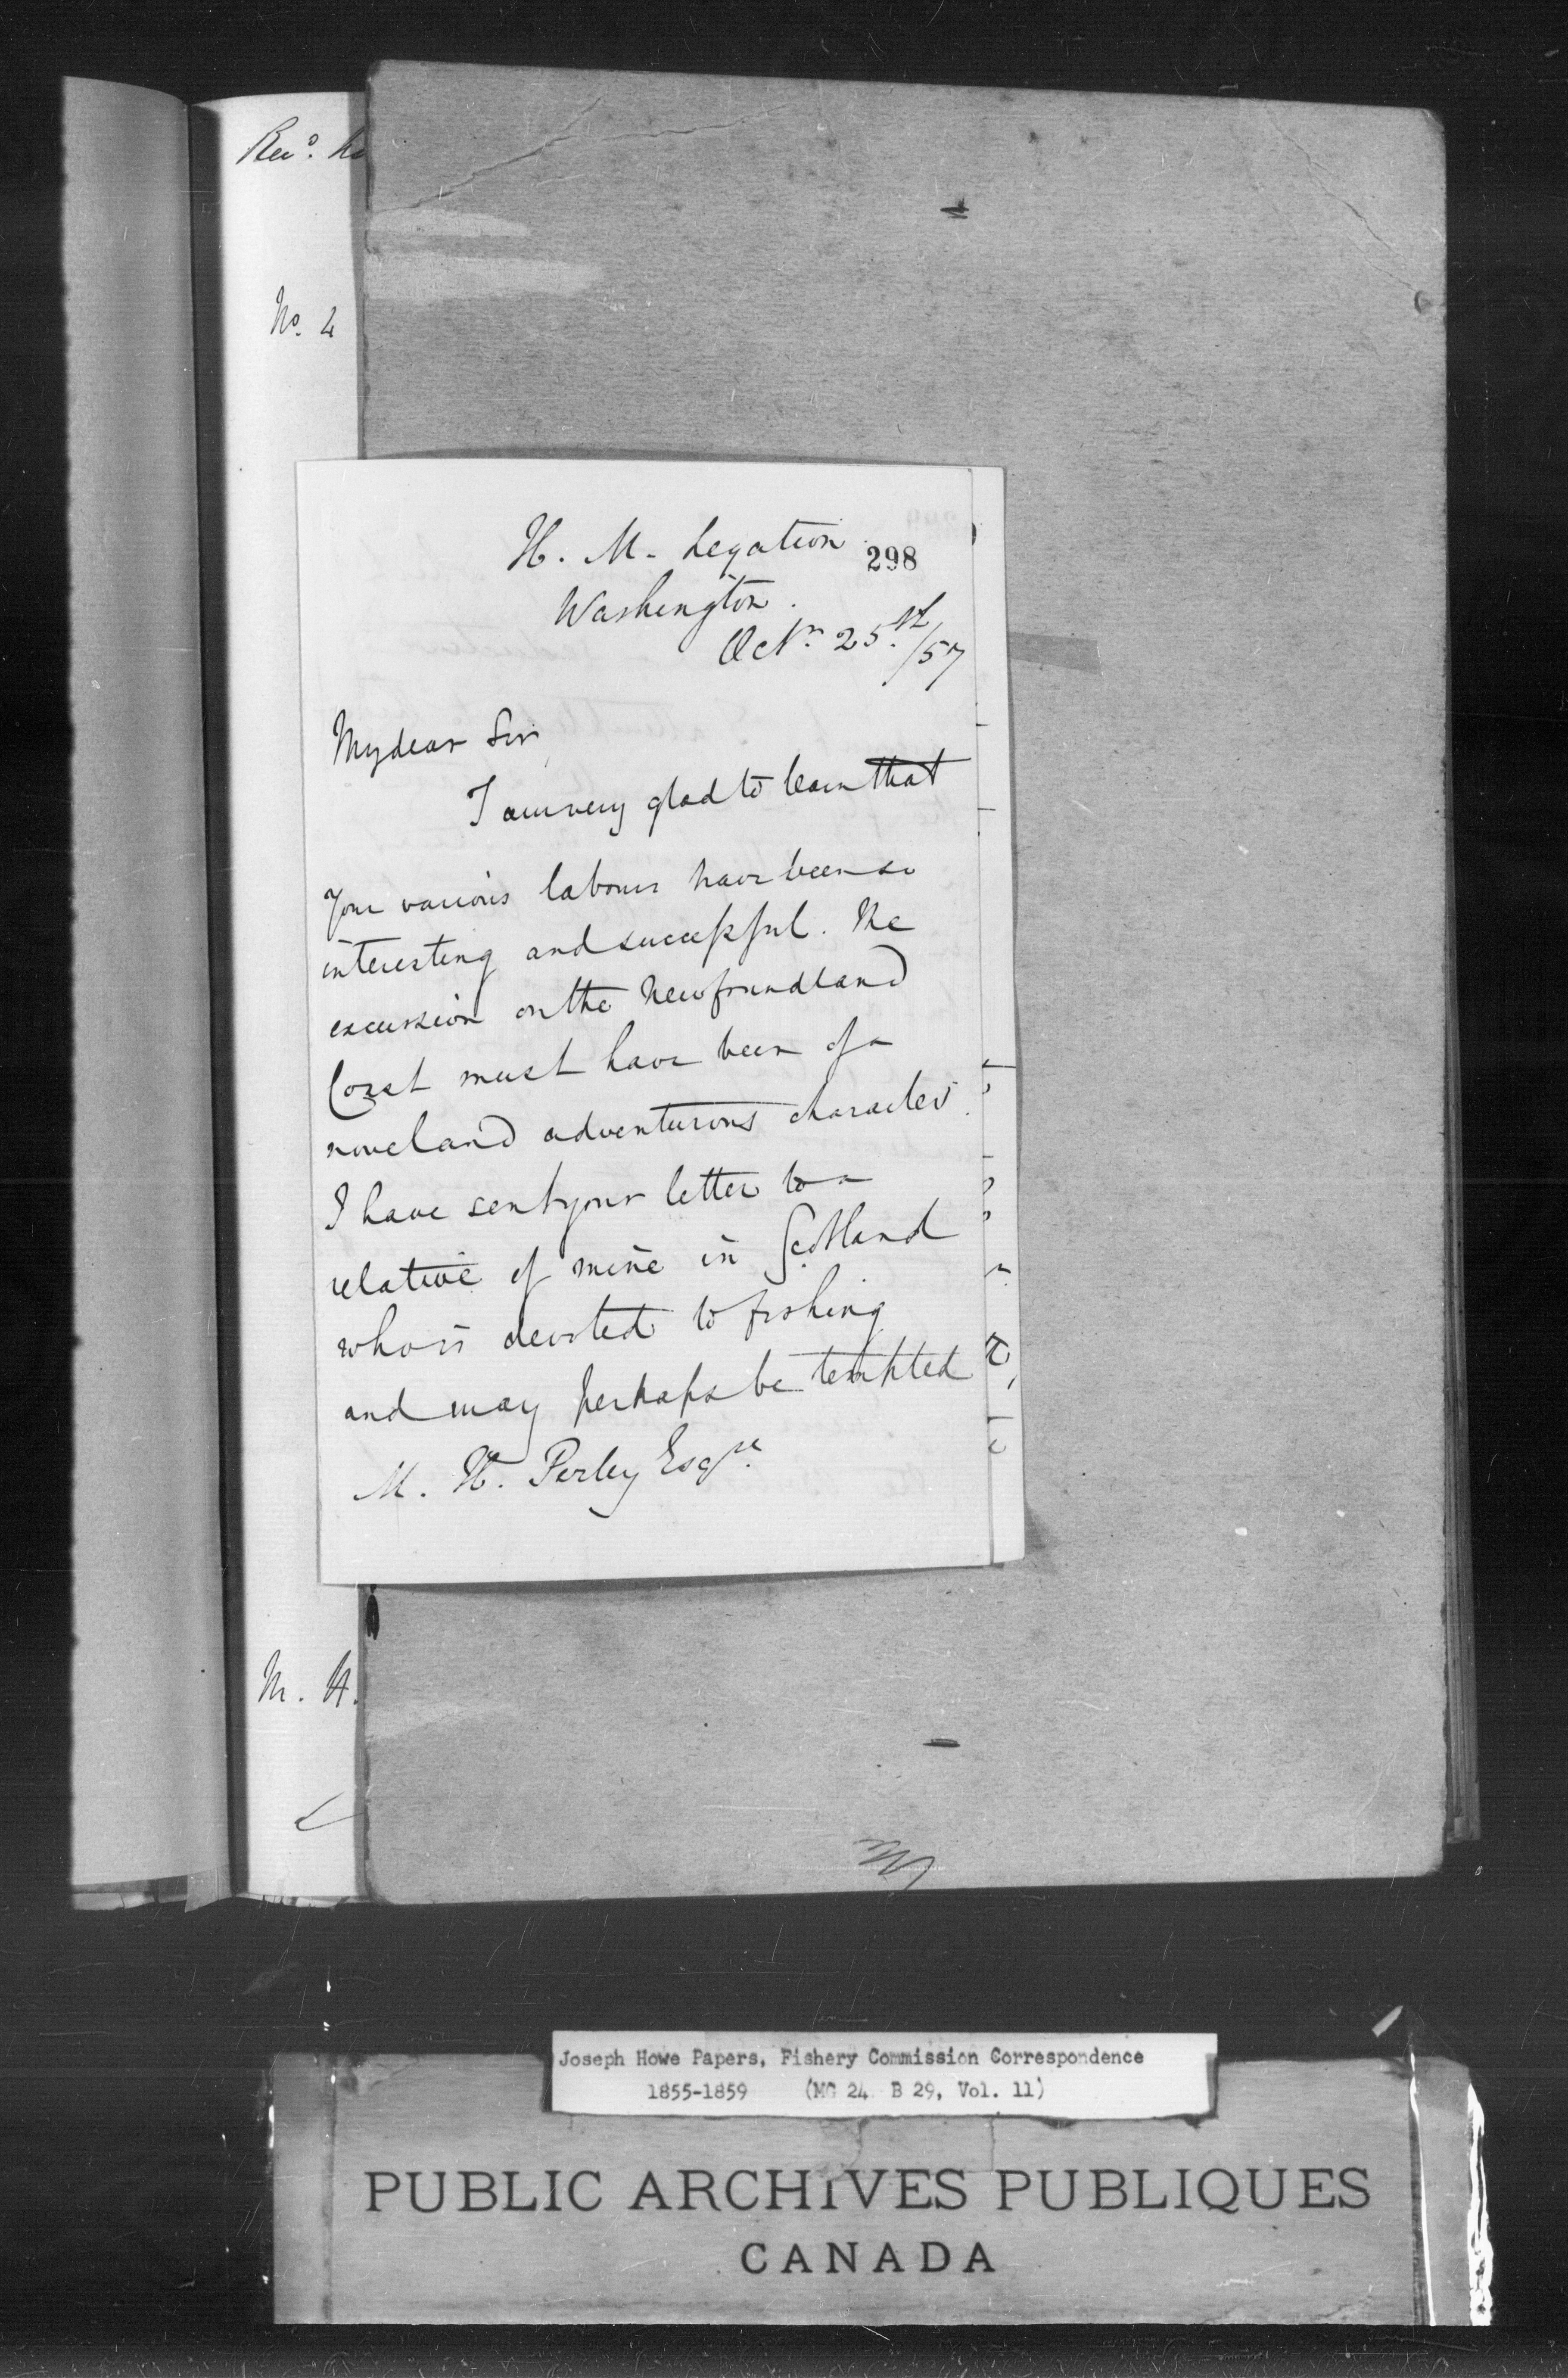 Rec'd.
No. 4
M. H.
H. M. Legation
298
Washington.
Octr. 25th/57
My dear Sir,
I am very glad to learn that
your various labours have been so
interesting and successful. The
excursion on the Newfoundland
Coast must have been of a
novel and adventurous character.
I have sent your letter to a
relative of mine in Scotland
who is devoted to fishing
and may perhaps be tempted
M. H. Perley Esqre.
Joseph Howe Papers, Fishery Commission Correspondence
1855-1859 (MG 24 B 29, Vol. 11)
PUBLIC ARCHIVES PUBLIQUES
CANADA